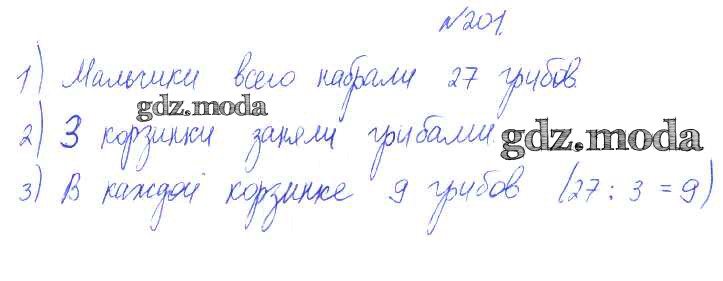 №201.
1) Мальчики всего набрали 27 грибов.
gdz.moda
2) 3 корзинки заняли грибами.
gdz.moda
3) В каждой корзинке 9 грибов (27 : 3 = 9)